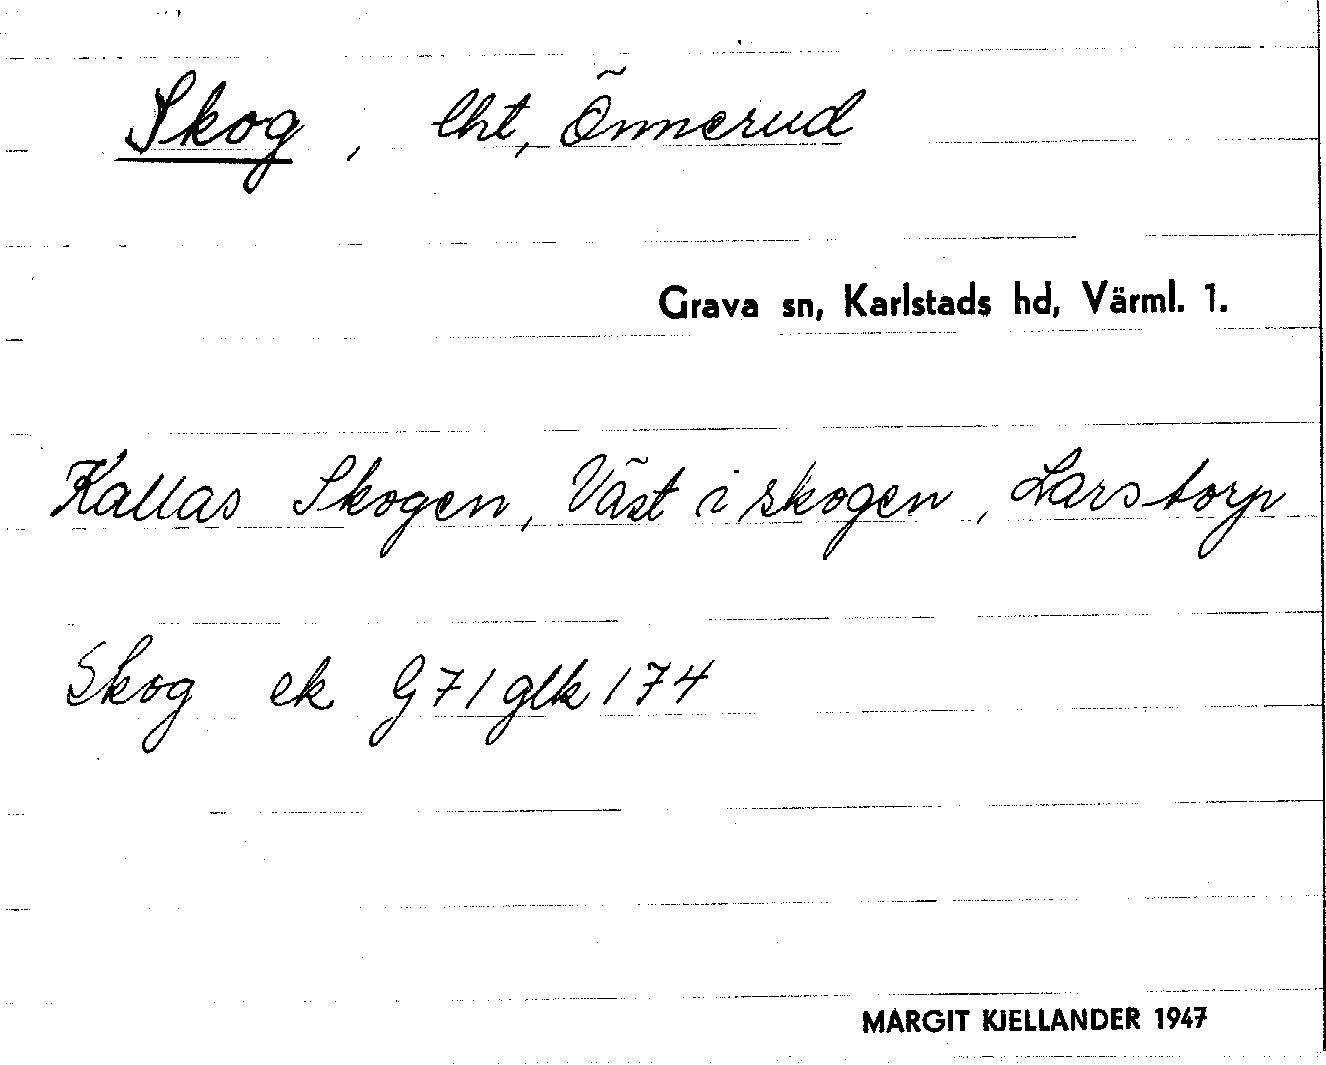 Skog, lht, Önnerud
Grava sn, Karlstads hd, Värml. 1.
Kallas Skogen, Väst i skogen, Larstorp
Skog ek G71 glk 174
MARGIT KJELLANDER 1947